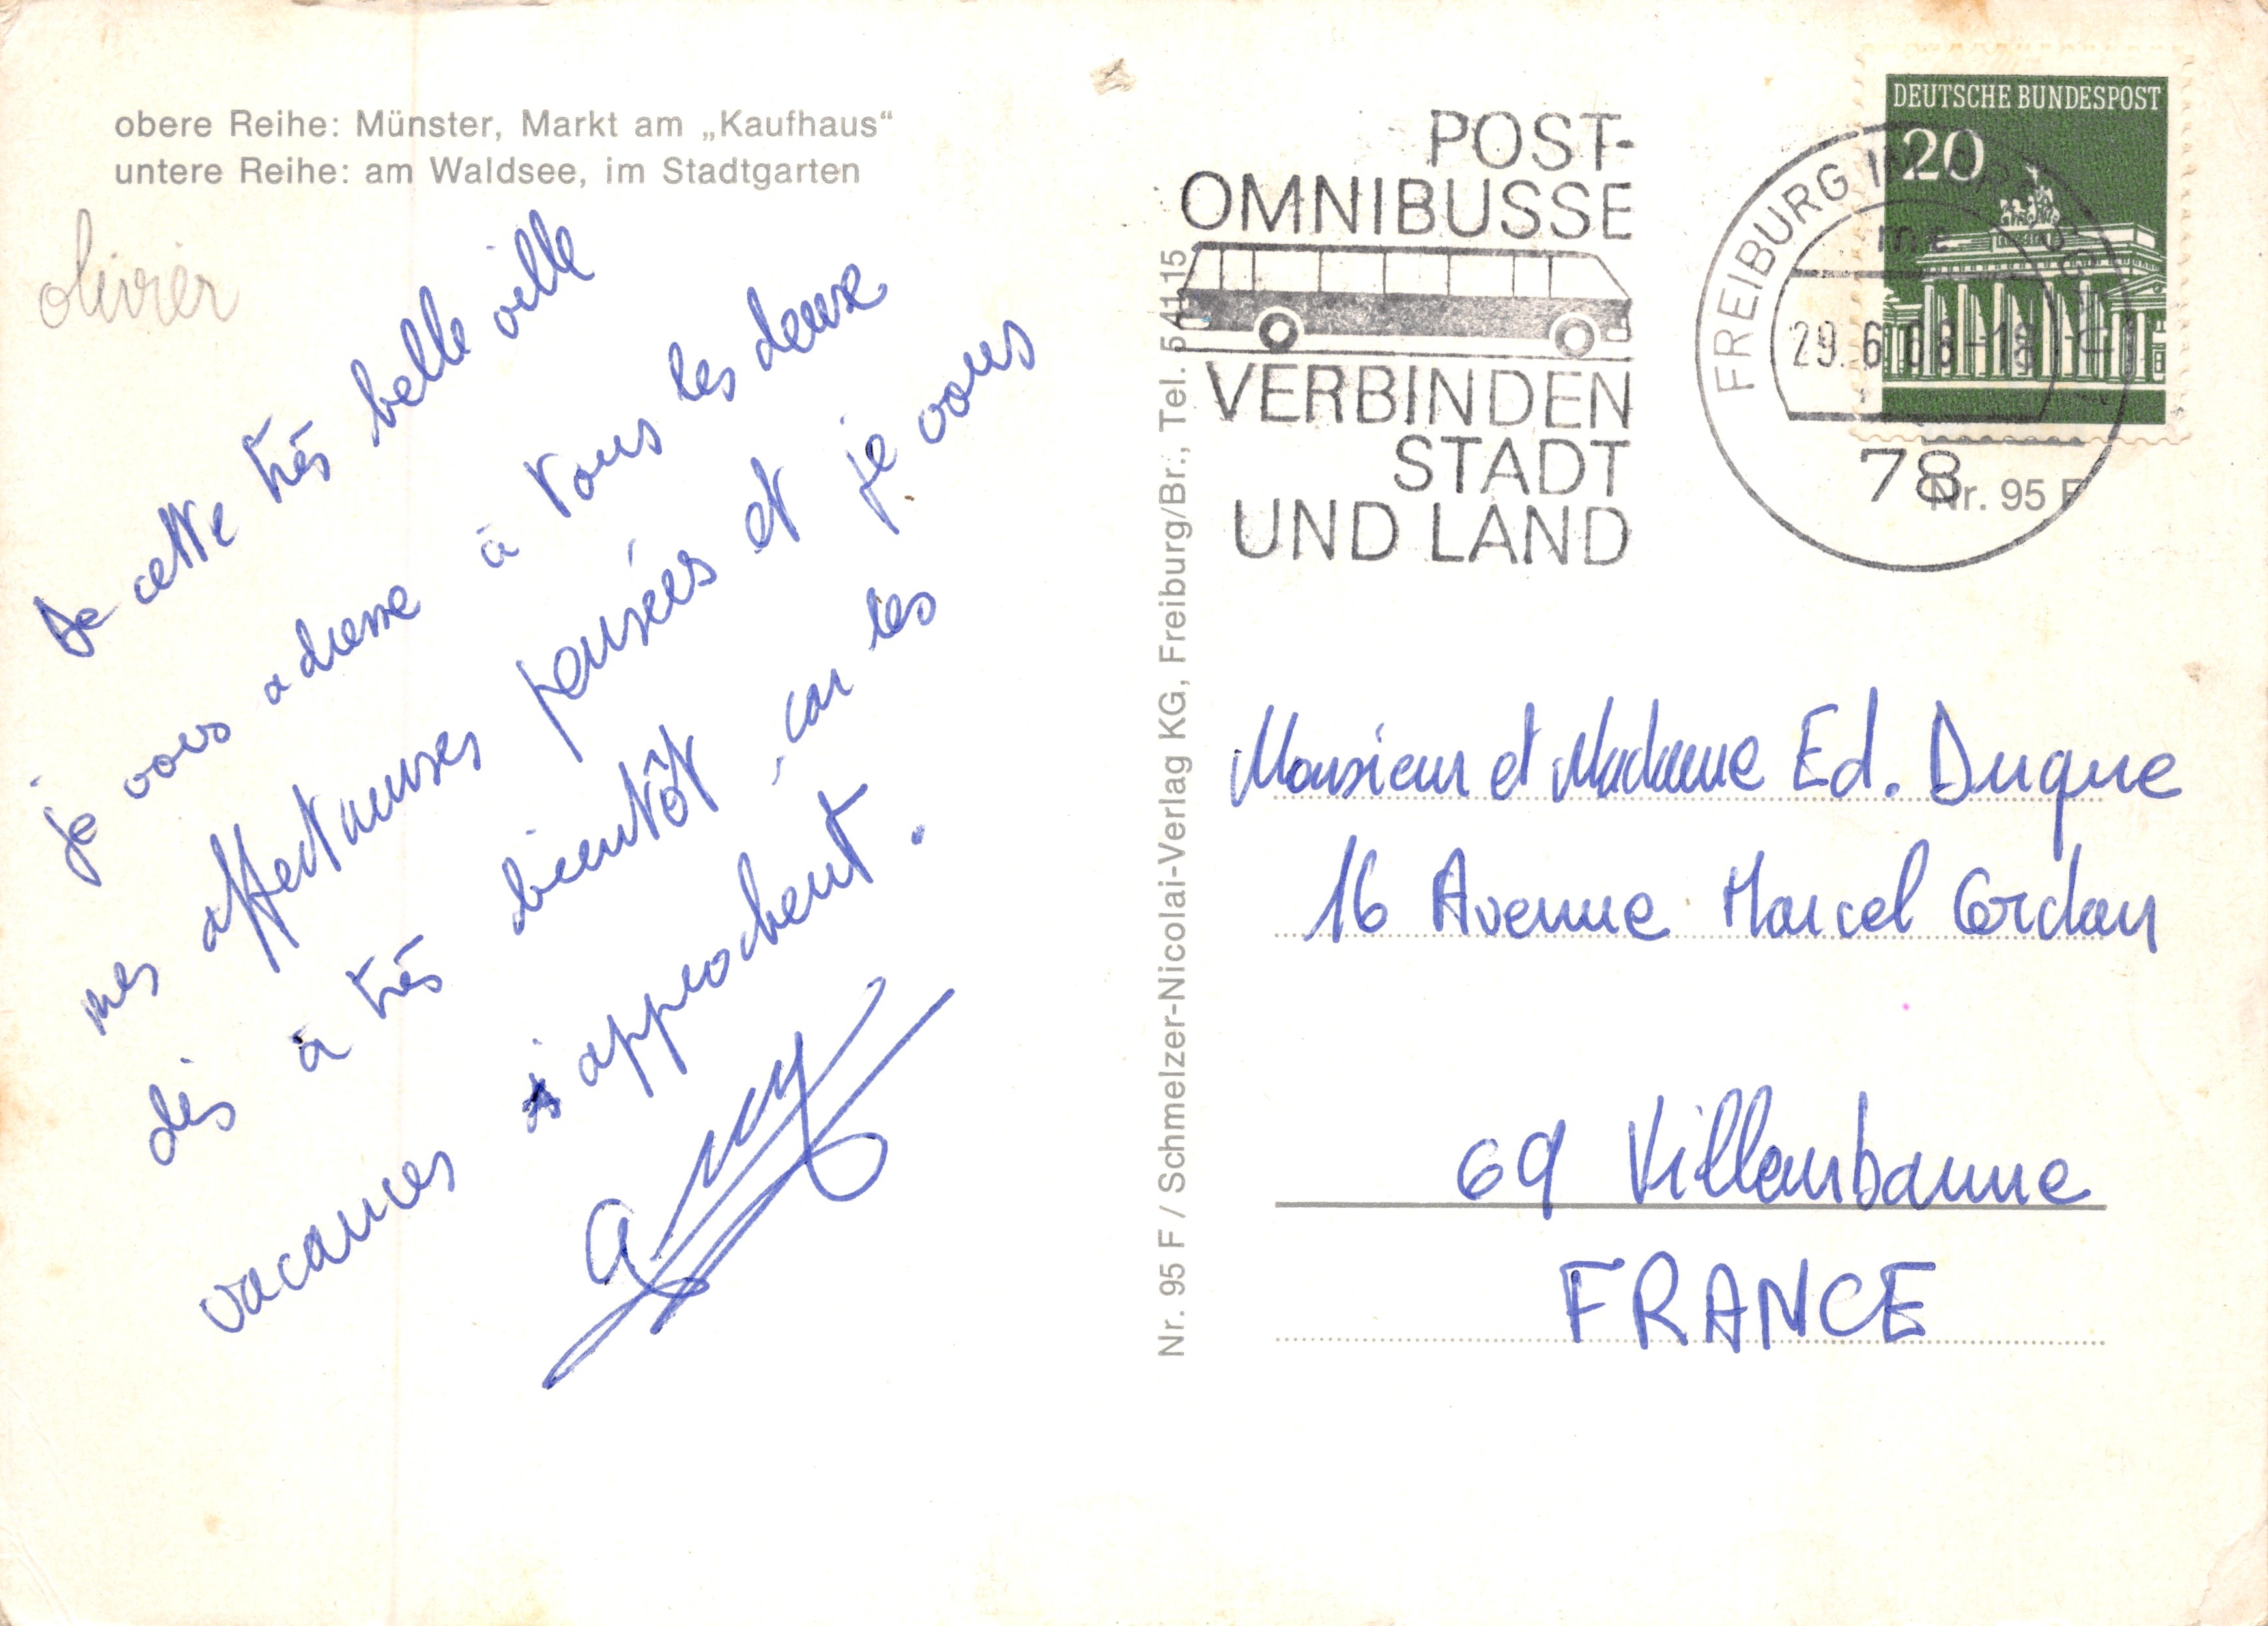 obere Reihe: Münster, Markt am „Kaufhaus“
untere Reihe: am Waldsee, im Stadtgarten
olivier
De cette très belle ville
je vous adresse à tous les deux
mes affectueuses pensées et je vous
dis à très bientôt, car les
vacances s'approchent.
Nr. 95 F / Schmelzer-Nicolai-Verlag KG, Freiburg/Br., Tel. 5 41 15
POST-
OMNIBUSSE
VERBINDEN
STADT
UND LAND
DEUTSCHE BUNDESPOST
20
FREIBURG IM BREISGAU
mc
29.6.68-18
78
Nr. 95 F
Monsieur et Madame Ed. Duque
16 Avenue Marcel Cerdan
69 Villeurbanne
FRANCE